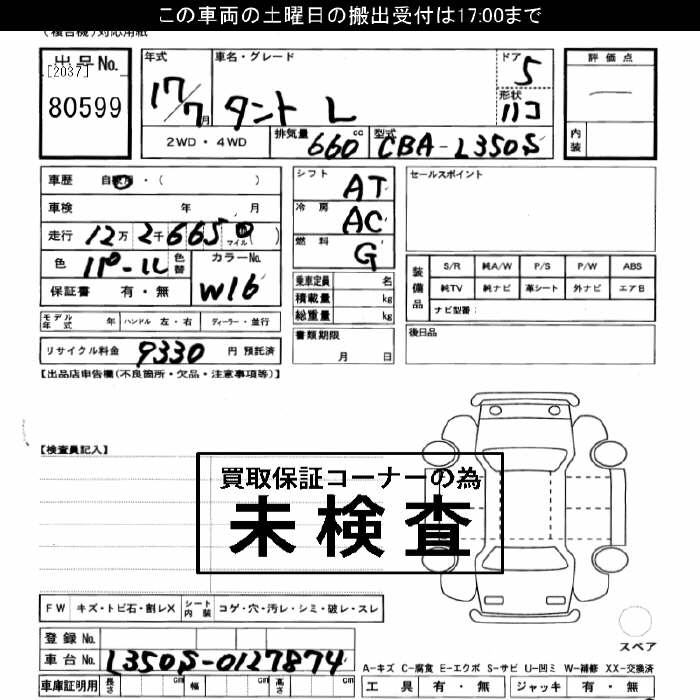 この車両の土曜日の搬出受付は17:00まで
(複合機)対応用紙
出品No.
[2037]
80599
年式
17/7月
車名・グレード
タント L
ドア
5
形状
ハコ
評価点
内装
2WD・4WD
排気量
660cc
型式
CBA-L350S
車歴 自家用・( )
車検 年 月
走行 12万2千665(マイル )
色 パール 色替
カラーNo.
W16
保証書 有・無
シフト
AT
冷房
AC
燃料
G
セールスポイント
装備品
S/R 純A/W P/S P/W ABS
純TV 純ナビ 革シート 外ナビ エアB
ナビ型番:
乗車定員 名
積載量 kg
総重量 kg
モデル年式 年 ハンドル 左・右 ディーラー・並行
書類期限
月 日
後日品
リサイクル料金 9330 円 預託済
【出品店申告欄(不良箇所・欠品・注意事項等)】
【検査員記入】
買取保証コーナーの為
未検査
FW キズ・トビ石・割レX シート内装 コゲ・穴・汚レ・シミ・破レ・スレ
スペア
登録No.
車台No. L350S-0127874
A-キズ C-腐食 E-エクボ S-サビ U-凹ミ W-補修 XX-交換済
車庫証明用 長さ cm 幅 cm 高さ cm
工具 有・無 ジャッキ 有・無